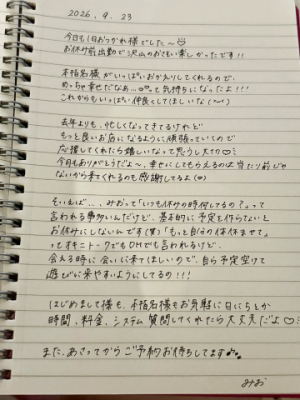 2026.4.23
今日も1日おつかれ様でした〜♡
お休み前出勤で沢山のおもてなし楽しかったです!!
本指名様がいっぱいおかえりしてくれるので
めっちゃ幸せだなぁ...って気持ちになったよ!!!
これからもいっぱい仲良くしてほしいな
去年よりも、忙しくなってきてるけれど
もっと良いお店になるように頑張っていくので
応援してくれたら嬉しいなって思うし大好♡
今日もありがとうだよ〜、幸せにしてもらえるのは当たり前じゃ
ないから来てくれるのも感謝してるよ
そいえば...、みおって「いつも休みの時何してるの?」って
言われる事多いんだけど、基本的に予定を作らないと
お休みにしないんです(笑)「もっと自分の体休ませて」
ってオキニトークでもDMでも言われるけど、
会える時に会いに来てほしいので、自ら予定空けて
遊びに来やすいようにしてるの!!!
はじめまして様も、本指名様もお気軽に日にちとか
時間、料金、システム質問してくれたら大丈夫だよ♡
また、あさってからご予約お待ちしてます♪
みお